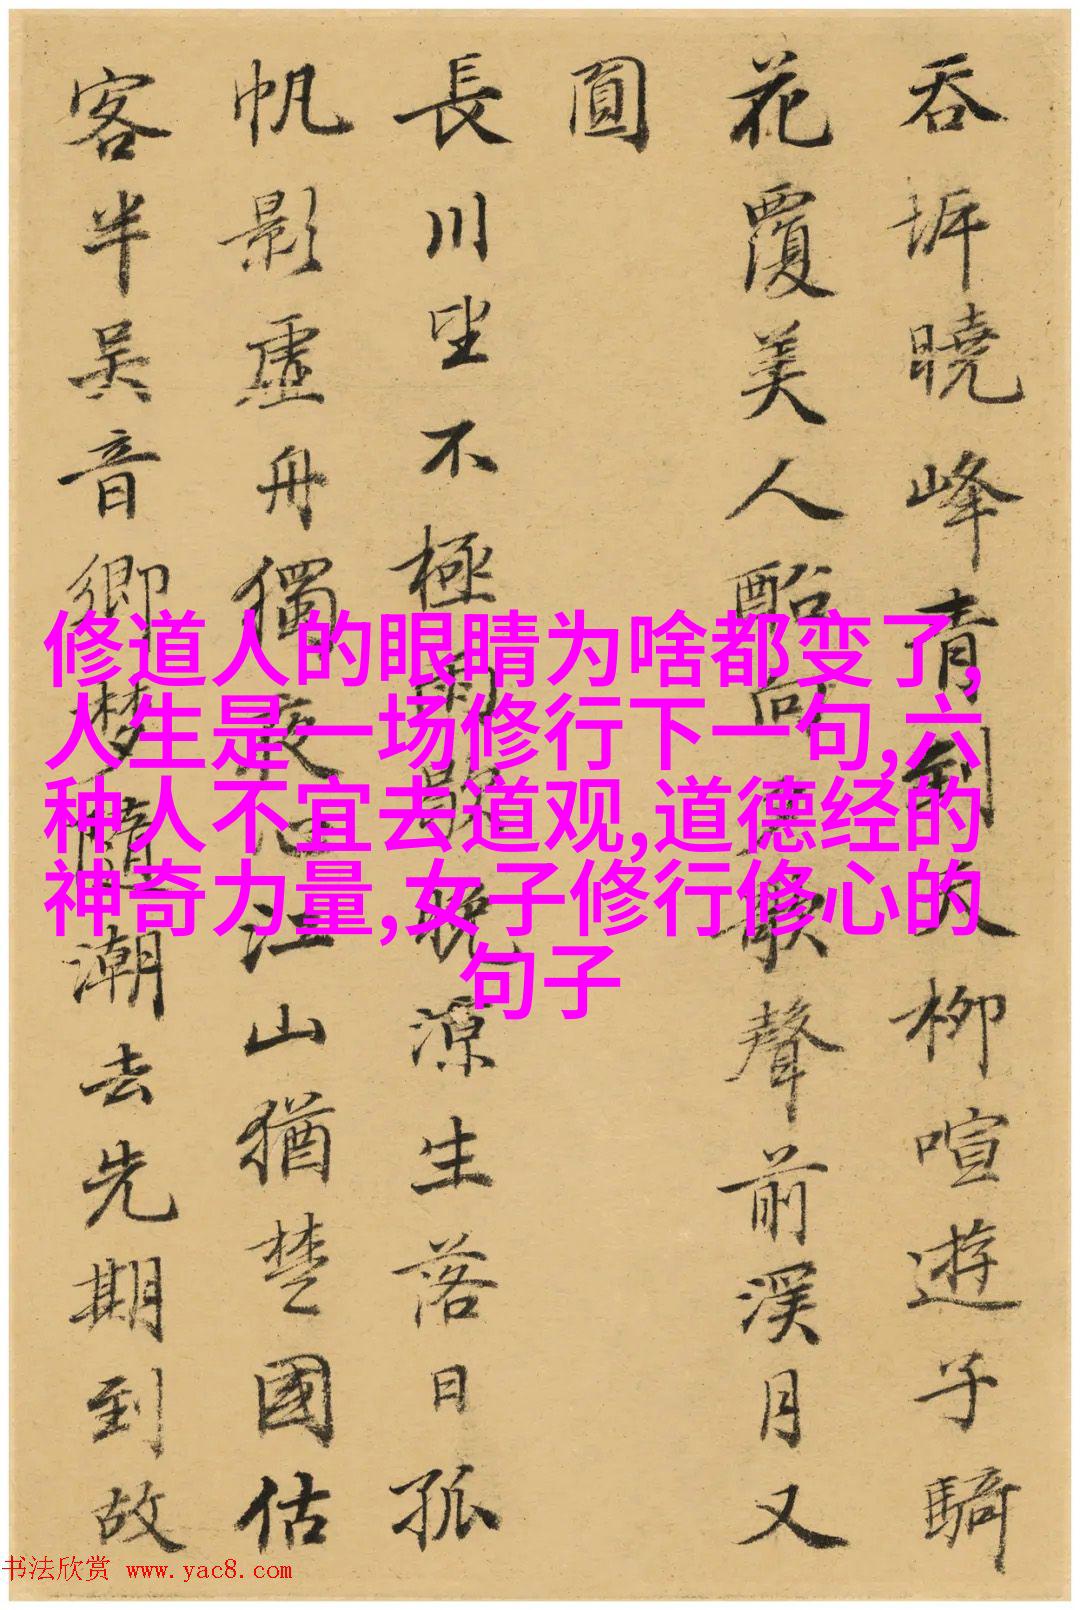 吞坼曉峰青大柳喧遊子騎
花覆美人向聲前溪月又
圓
長川坐不極晚源生落日孤
帆影虛舟獨夜心江山猶楚國估
客半吳音鄉夢隨潮去先期到故
修道人的眼睛为啥都变了,
人生是一场修行下一句,六
种人不宜去道观,道德经的
神奇力量,女子修行修心的
句子
书法欣赏 www.yac8.com